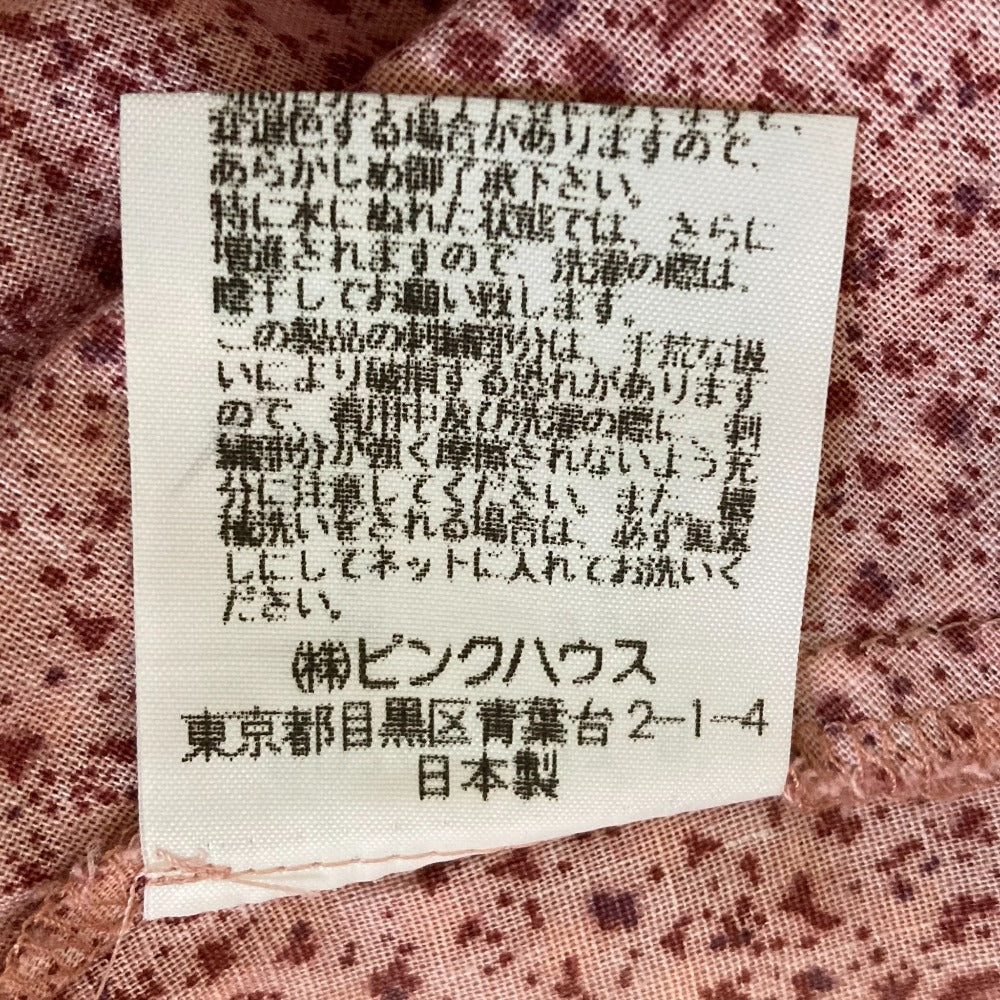 変退色する場合がありますので、
あらかじめ御了承下さい。
特に水にぬれた状態では、さらに
増進されますので、洗濯の際は、
陰干してお願い致します。
この製品の刺繍部分は、手荒な扱
いにより破損する恐れがあります
ので、着用中及び洗濯の際に、刺
繍部分が強く摩擦されないよう充
分に注意してください。また、機
械洗いをされる場合は、必ず裏返
しにしてネットに入れてお洗いく
ださい。
㈱ピンクハウス
東京都目黒区青葉台2-1-4
日本製